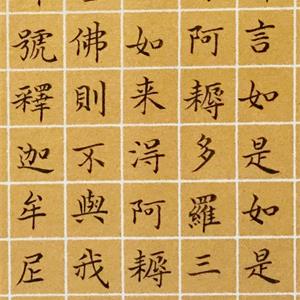 言如是如是
阿耨多羅三
如来得阿耨
佛則不與我
號釋迦牟尼